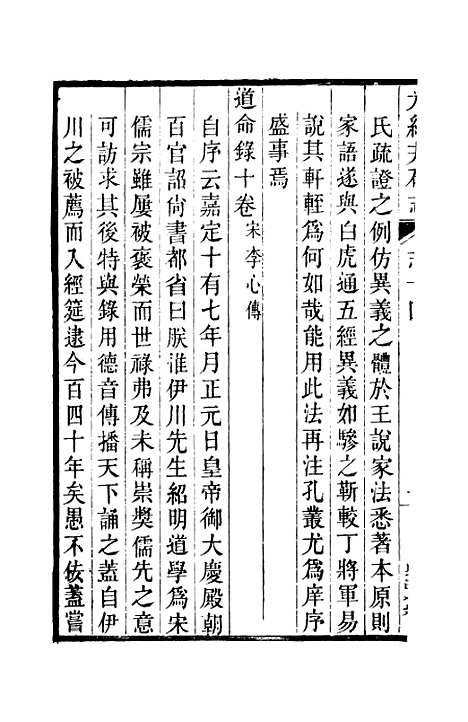 氏疏證之例仿異義之體於王說家法悉著本原則
家語遂與白虎通五經異義如驂之靳較丁將軍易
說其軒輊爲何如哉能用此法再注孔叢尤爲庠序
盛事焉
道命錄十卷 宋李心傳
自序云嘉定十有七年月正元日皇帝御大慶殿朝
百官詔尚書都省曰朕淮伊川先生紹明道學爲宋
儒宗雖屢被褒榮而世祿弗及未稱崇奬儒先之意
可訪求其後特與錄用德音傳播天下誦之蓋自伊
川之被薦而入經筵逮今百四十年矣愚不佞蓋嘗